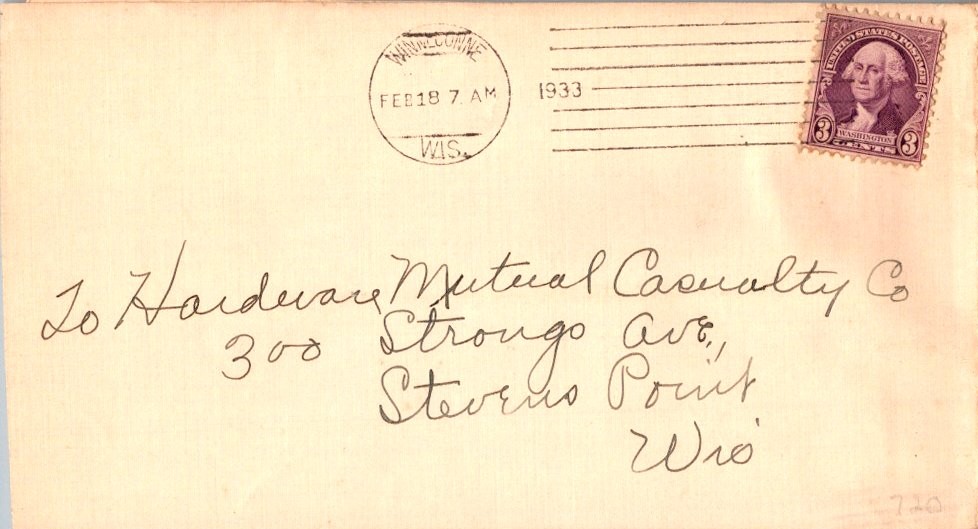 WINNECONNE
FEB 18 7 AM
WIS.
1933
UNITED STATES POSTAGE
3 WASHINGTON 3
CENTS
To Hardware Mutual Casualty Co
300 Strongs Ave.,
Stevens Point
Wis
720